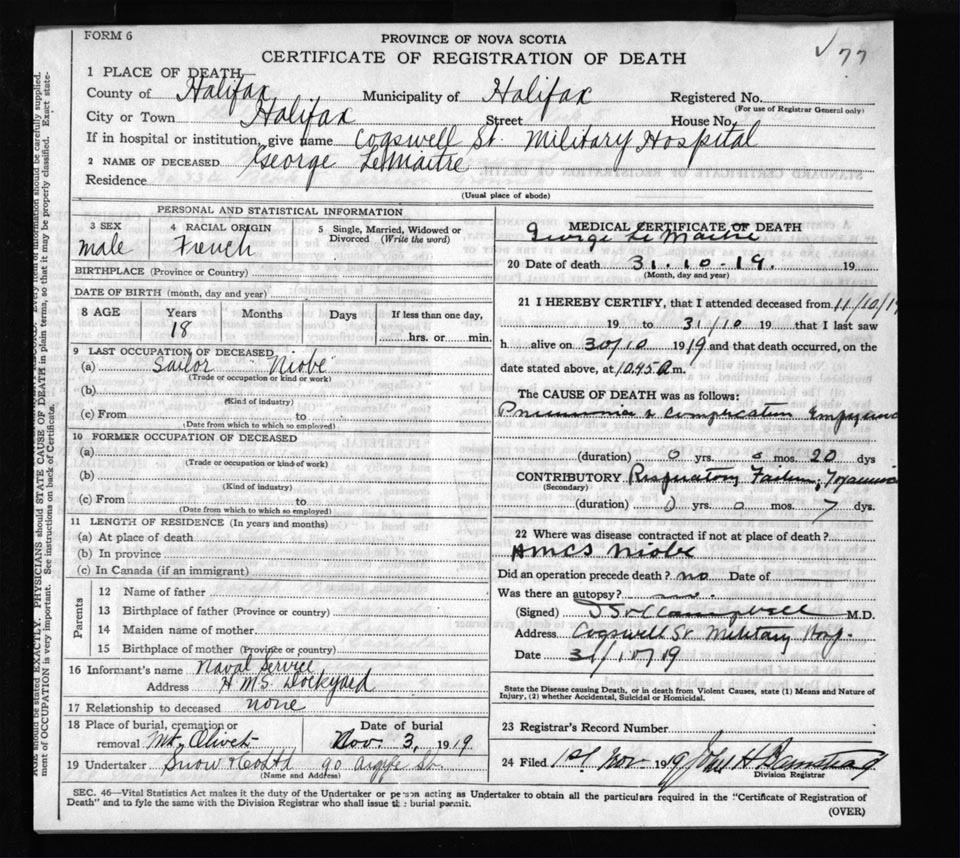 FORM 6
PROVINCE OF NOVA SCOTIA
CERTIFICATE OF REGISTRATION OF DEATH
√ 77
1 PLACE OF DEATH
County of Halifax Municipality of Halifax Registered No.
(For use of Registrar General only)
City or Town Halifax Street House No.
If in hospital or institution, give name Cogswell St. Military Hospital
2 NAME OF DECEASED George LeMaitre
Residence
(Usual place of abode)
PERSONAL AND STATISTICAL INFORMATION
3 SEX 4 RACIAL ORIGIN 5 Single, Married, Widowed or Divorced (Write the word)
male French
BIRTHPLACE (Province or Country)
DATE OF BIRTH (month, day and year)
8 AGE Years Months Days If less than one day,
18 hrs. or min.
9 LAST OCCUPATION OF DECEASED
(a) Sailor "Niobe"
(Trade or occupation or kind or work)
(b)
(Kind of industry)
(c) From to
(Date from which to which so employed)
10 FORMER OCCUPATION OF DECEASED
(a)
(Trade or occupation or kind of work)
(b)
(Kind of industry)
(c) From to
(Date from which to which so employed)
11 LENGTH OF RESIDENCE (In years and months)
(a) At place of death
(b) In province
(c) In Canada (if an immigrant)
Parents
12 Name of father
13 Birthplace of father (Province or country)
14 Maiden name of mother
15 Birthplace of mother (Province or country)
16 Informant's name Naval Service
Address H M S Dockyard
17 Relationship to deceased none
18 Place of burial, cremation or removal Mt. Olivet Date of burial Nov. 3, 1919
19 Undertaker Snow & Co Ltd 90 Argyle St.
(Name and Address)
MEDICAL CERTIFICATE OF DEATH
George Le Maitre
20 Date of death 31.10.19. 19
(Month, day and year)
21 I HEREBY CERTIFY, that I attended deceased from 11/10/19
19 to 31/10 19 that I last saw
h alive on 30/10 1919 and that death occurred, on the
date stated above, at 10.45 a.m.
The CAUSE OF DEATH was as follows:
Pneumonia & complication Empyema
(duration) 0 yrs. 0 mos. 20 dys
CONTRIBUTORY Respiratory Failure, Toxaemia
(Secondary)
(duration) 0 yrs. 0 mos. 7 dys.
22 Where was disease contracted if not at place of death?
HMCS Niobe
Did an operation precede death? no Date of
Was there an autopsy? no.
(Signed) Campbell M.D.
Address Cogswell St Military Hosp.
Date 31/10/19
State the Disease causing Death, or in death from Violent Causes, state (1) Means and Nature of
Injury, (2) whether Accidental, Suicidal or Homicidal.
23 Registrar's Record Number
24 Filed 1st Nov 1919 John H
Division Registrar
SEC. 46—Vital Statistics Act makes it the duty of the Undertaker or person acting as Undertaker to obtain all the particulars required in the "Certificate of Registration of
Death" and to fyle the same with the Division Registrar who shall issue the burial permit.
(OVER)